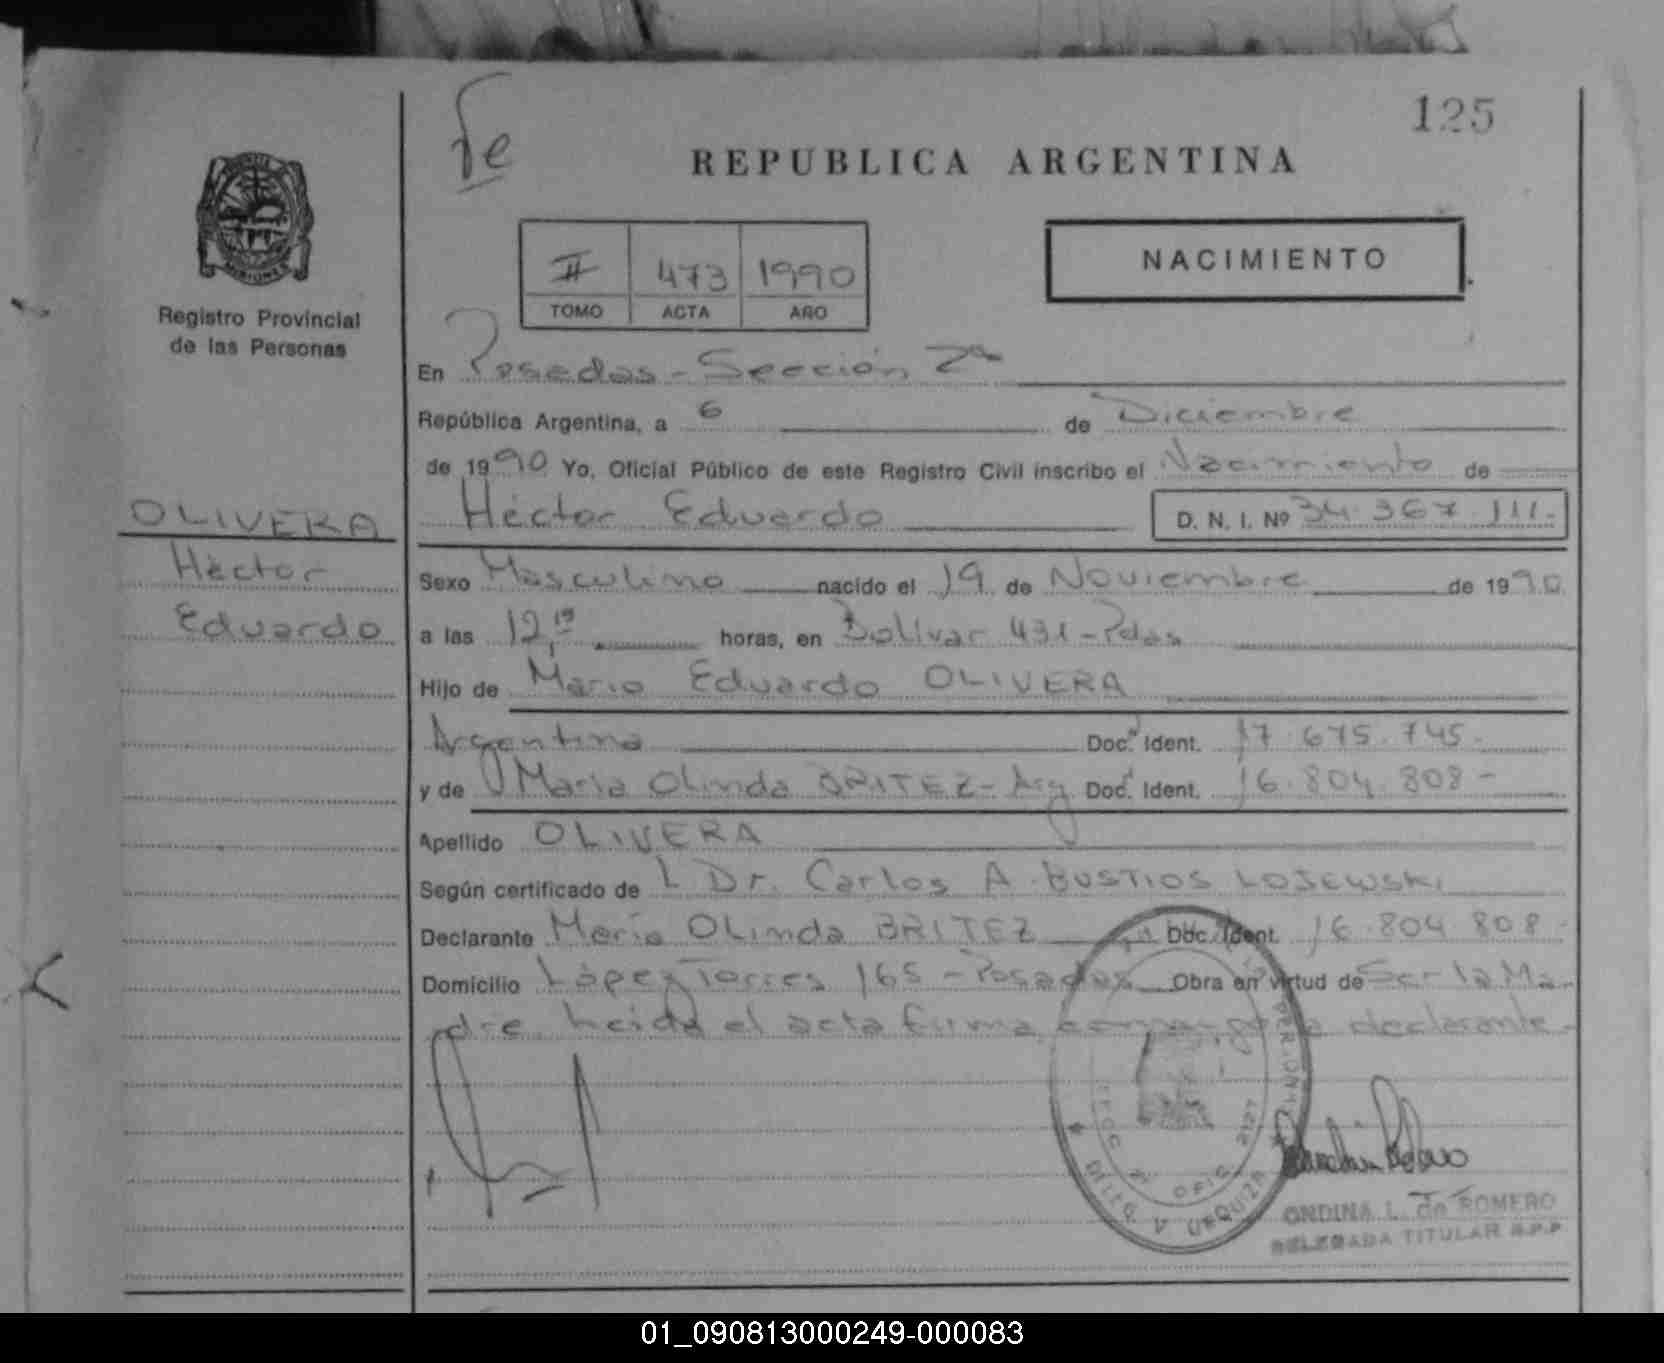 125
Fe
REPUBLICA ARGENTINA
MISIONES
Registro Provincial
de las Personas
II 473 1990
TOMO ACTA AÑO
NACIMIENTO
En Posadas - Sección 2ª
República Argentina, a 6 de Diciembre
de 1990 Yo, Oficial Público de este Registro Civil inscribo el Nacimiento de
OLIVERA
Héctor
Eduardo
Héctor Eduardo D. N. I. Nº 34.367.111.-
Sexo Masculino nacido el 19 de Noviembre de 1990
a las 12,19 horas, en Bolívar 431 - Pdas
Hijo de Mario Eduardo OLIVERA
Argentina Doc. Ident. 17.675.745.-
y de María Olinda BRITEZ - Arg Doc. Ident. 16.804.808 -
Apellido OLIVERA
Según certificado de L Dr. Carlos A. BUSTIOS LOJEWSKI
Declarante María OLinda BRITEZ Doc. Ident. 16.804.808 -
Domicilio López Torres 165 - Posadas Obra en virtud de Ser la Ma-
dre. Leida el acta firma conmigo la declarante -
OFIC. 2127
URQUIZA
ONDINA L. de ROMERO
DELEGADA TITULAR R.P.P
01_090813000249-000083